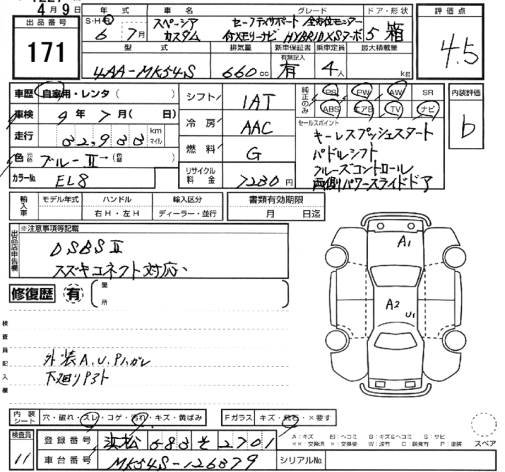 4月9日
出品番号
171
年式 車名 グレード ドア・形状
S・H 6年7月 スペーシア カスタム セーフティサポート 全方位モニター 付メモリーナビ HYBRID XSターボ 5 箱
型式 排気量 新車保証書 乗車定員 最大積載量
4AA-MK54S 660cc 有 4人 kg
評価点
4.5
内装評価
b
車歴 自家用・レンタ( )
車検 9年7月( 日)
走行 32,933 km マイル
色 ブルーⅡ→(色替 )
カラーNo. EL8
シフト IAT
冷房 AAC
燃料 G
リサイクル料金 7230円
純正のみ PS PW AW SR
ABS エアB TV ナビ
セールスポイント
キーレスプッシュスタート
パドルシフト
クルーズコントロール
両側パワースライドドア
輸入車 モデル年式 ハンドル 輸入区分
年 右H・左H ディーラー・並行
書類有効期限
月 日迄
出品店申告欄
※注意事項等記載
DSBSⅡ
スズキコネクト対応
修復歴 有 箇所
検査員記入欄
外装A,U,Pハガレ
下廻りサビ
A1
A2
U1
内装シート 穴・破れ・スレ・コゲ・汚れ・キズ・黄ばみ
Fガラス キズ・飛石・×要す
A:キズ E:ヘコミ B:キズ&ヘコミ S:サビ
スペア
検査員 11
登録番号 浜松 583 そ 2701
車台番号 MK54S-126879
シリアルNo.